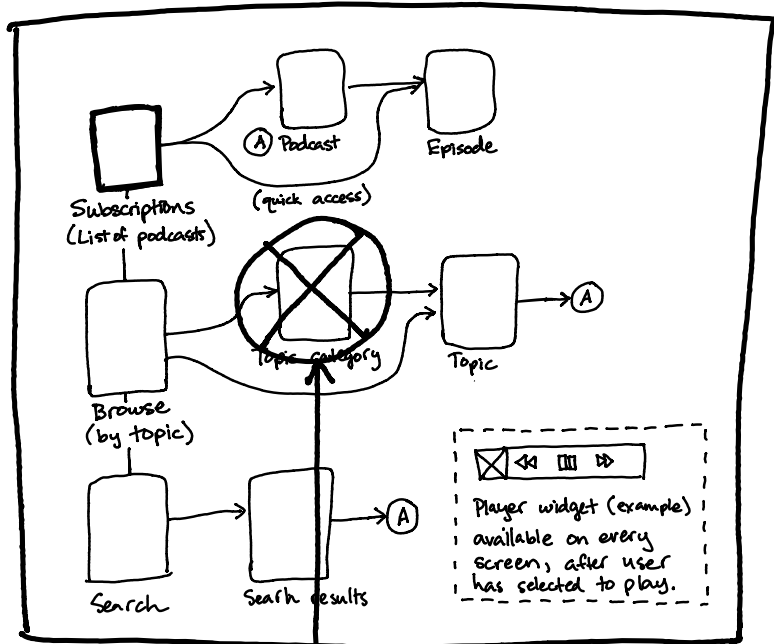 A Podcast
Episode
(quick access)
Subscriptions
(List of podcasts)
Topic category
Topic
A
Browse
(by topic)
A
Search
Searh results
Player widget (example)
available on every
screen, after user
has selected to play.